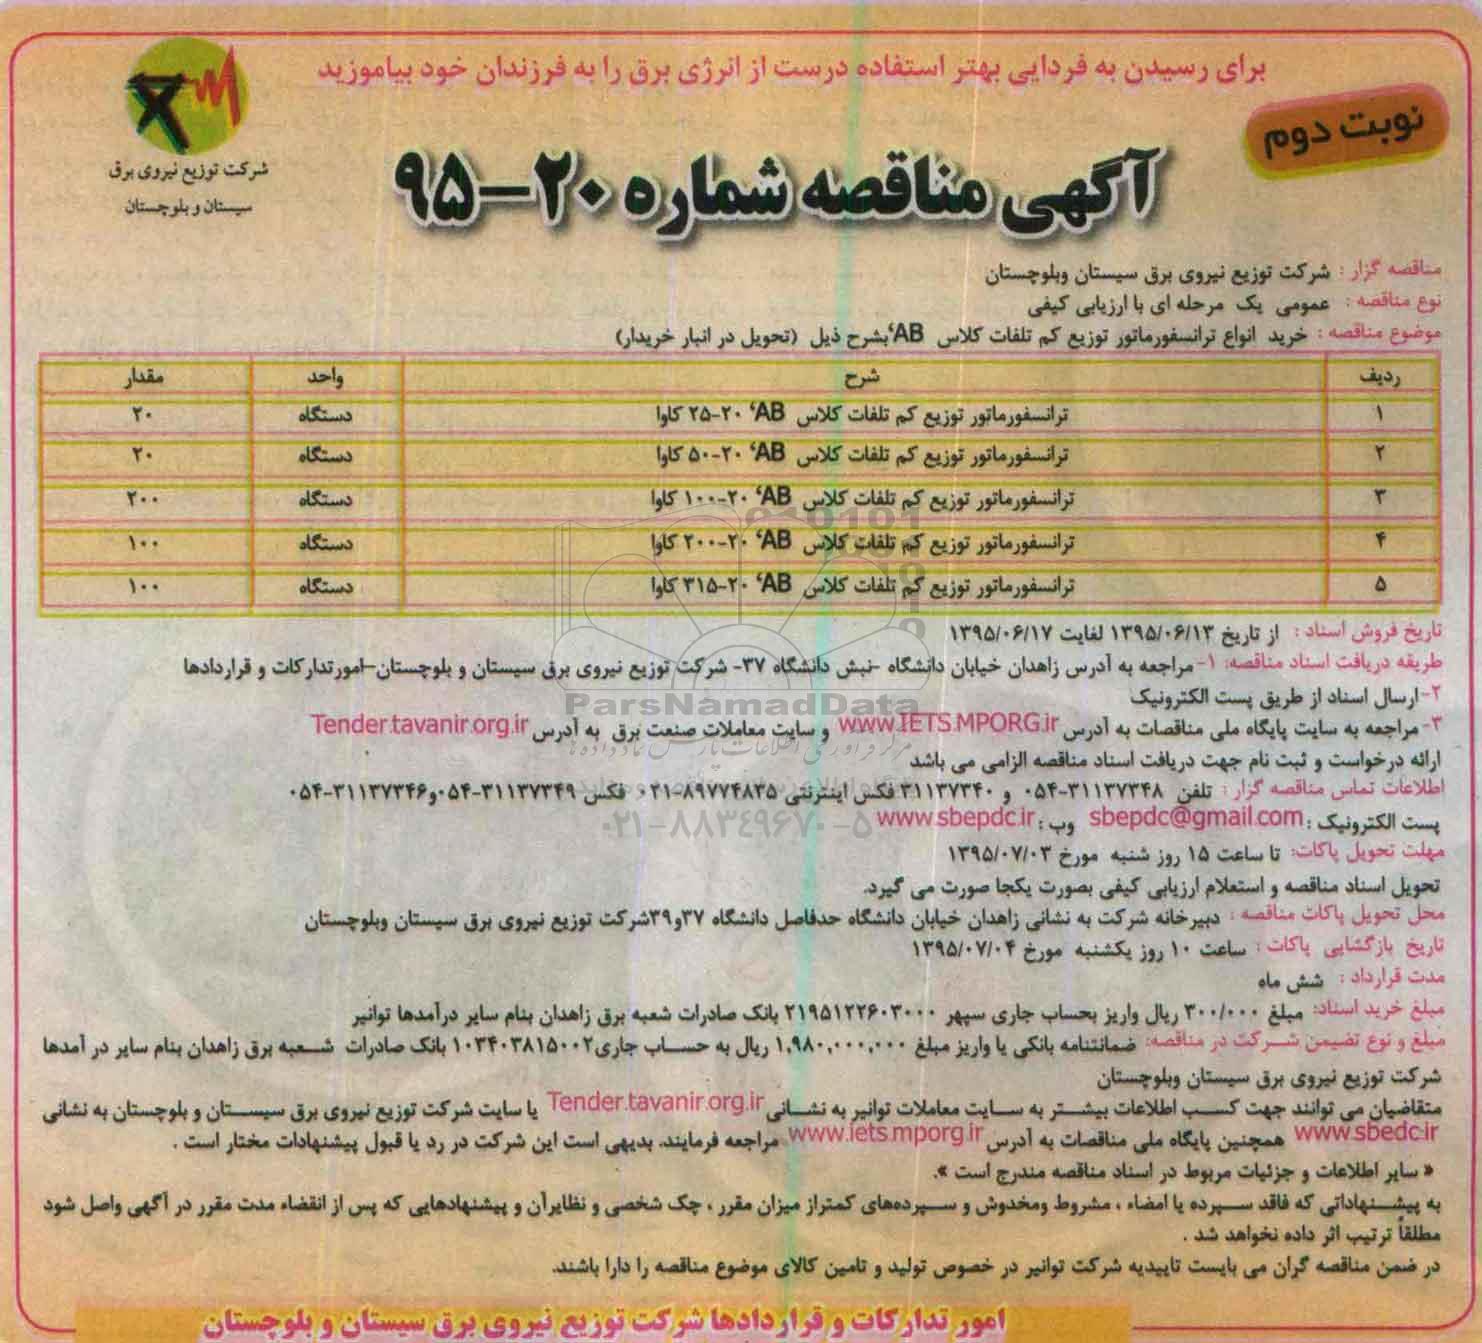 برای رسیدن به فردایی بهتر استفاده درست از انرژی برق را به فرزندان خود بیاموزید
نوبت دوم
شرکت توزیع نیروی برق
سیستان و بلوچستان
آگهی مناقصه شماره ۲۰-۹۵
مناقصه گزار : شرکت توزیع نیروی برق سیستان وبلوچستان
نوع مناقصه : عمومی یک مرحله ای با ارزیابی کیفی
موضوع مناقصه : خرید انواع ترانسفورماتور توزیع کم تلفات کلاس AB‘ بشرح ذیل (تحویل در انبار خریدار)
ردیف شرح واحد مقدار
۱ ترانسفورماتور توزیع کم تلفات کلاس AB‘ ۲۰-۲۵ کاوا دستگاه ۲۰
۲ ترانسفورماتور توزیع کم تلفات کلاس AB‘ ۲۰-۵۰ کاوا دستگاه ۲۰
۳ ترانسفورماتور توزیع کم تلفات کلاس AB‘ ۲۰-۱۰۰ کاوا دستگاه ۲۰۰
۴ ترانسفورماتور توزیع کم تلفات کلاس AB‘ ۲۰-۲۰۰ کاوا دستگاه ۱۰۰
۵ ترانسفورماتور توزیع کم تلفات کلاس AB‘ ۲۰-۳۱۵ کاوا دستگاه ۱۰۰
تاریخ فروش اسناد : از تاریخ ۱۳۹۵/۰۶/۱۳ لغایت ۱۳۹۵/۰۶/۱۷
طریقه دریافت اسناد مناقصه: ۱-مراجعه به آدرس زاهدان خیابان دانشگاه -نبش دانشگاه ۳۷- شرکت توزیع نیروی برق سیستان و بلوچستان-امورتدارکات و قراردادها
۲-ارسال اسناد از طریق پست الکترونیک
ParsNamadData
۳-مراجعه به سایت پایگاه ملی مناقصات به آدرس www.IETS.MPORG.ir و سایت معاملات صنعت برق به آدرس Tender.tavanir.org.ir
ارائه درخواست و ثبت نام جهت دریافت اسناد مناقصه الزامی می باشد
اطلاعات تماس مناقصه گزار : تلفن ۳۱۱۳۷۳۴۸-۰۵۴ و ۳۱۱۳۷۳۴۰ فکس اینترنتی ۸۹۷۷۴۸۳۵-۰۲۱ فکس ۳۱۱۳۷۳۴۹-۰۵۴و۳۱۱۳۷۳۴۶-۰۵۴
پست الکترونیک : sbepdc@gmail.com وب : www.sbepdc.ir
۰۲۱-۸۸۳۴۹۶۷۰-۵
مهلت تحویل پاکات: تا ساعت ۱۵ روز شنبه مورخ ۱۳۹۵/۰۷/۰۳
تحویل اسناد مناقصه و استعلام ارزیابی کیفی بصورت یکجا صورت می گیرد.
محل تحویل پاکات مناقصه : دبیرخانه شرکت به نشانی زاهدان خیابان دانشگاه حدفاصل دانشگاه ۳۷و۳۹شرکت توزیع نیروی برق سیستان وبلوچستان
تاریخ بازگشایی پاکات : ساعت ۱۰ روز یکشنبه مورخ ۱۳۹۵/۰۷/۰۴
مدت قرارداد : شش ماه
مبلغ خرید اسناد: مبلغ ۳۰۰/۰۰۰ ریال واریز بحساب جاری سپهر ۲۱۹۵۱۲۲۶۰۳۰۰۰ بانک صادرات شعبه برق زاهدان بنام سایر درآمدها توانیر
مبلغ و نوع تضمین شرکت در مناقصه: ضمانتنامه بانکی یا واریز مبلغ ۱,۹۸۰,۰۰۰,۰۰۰ ریال به حساب جاری۱۰۳۴۰۳۸۱۵۰۰۲ بانک صادرات شعبه برق زاهدان بنام سایر در آمدها
شرکت توزیع نیروی برق سیستان وبلوچستان
متقاضیان می توانند جهت کسب اطلاعات بیشتر به سایت معاملات توانیر به نشانی Tender.tavanir.org.ir یا سایت شرکت توزیع نیروی برق سیستان و بلوچستان به نشانی
www.sbedc.ir همچنین پایگاه ملی مناقصات به آدرس www.iets.mporg.ir مراجعه فرمایند. بدیهی است این شرکت در رد یا قبول پیشنهادات مختار است .
« سایر اطلاعات و جزئیات مربوط در اسناد مناقصه مندرج است ».
به پیشنهاداتی که فاقد سپرده یا امضاء ، مشروط ومخدوش و سپرده‌های کمتراز میزان مقرر ، چک شخصی و نظایرآن و پیشنهادهایی که پس از انقضاء مدت مقرر در آگهی واصل شود
مطلقاً ترتیب اثر داده نخواهد شد .
در ضمن مناقصه گران می بایست تاییدیه شرکت توانیر در خصوص تولید و تامین کالای موضوع مناقصه را دارا باشند.
امور تدارکات و قراردادها شرکت توزیع نیروی برق سیستان و بلوچستان